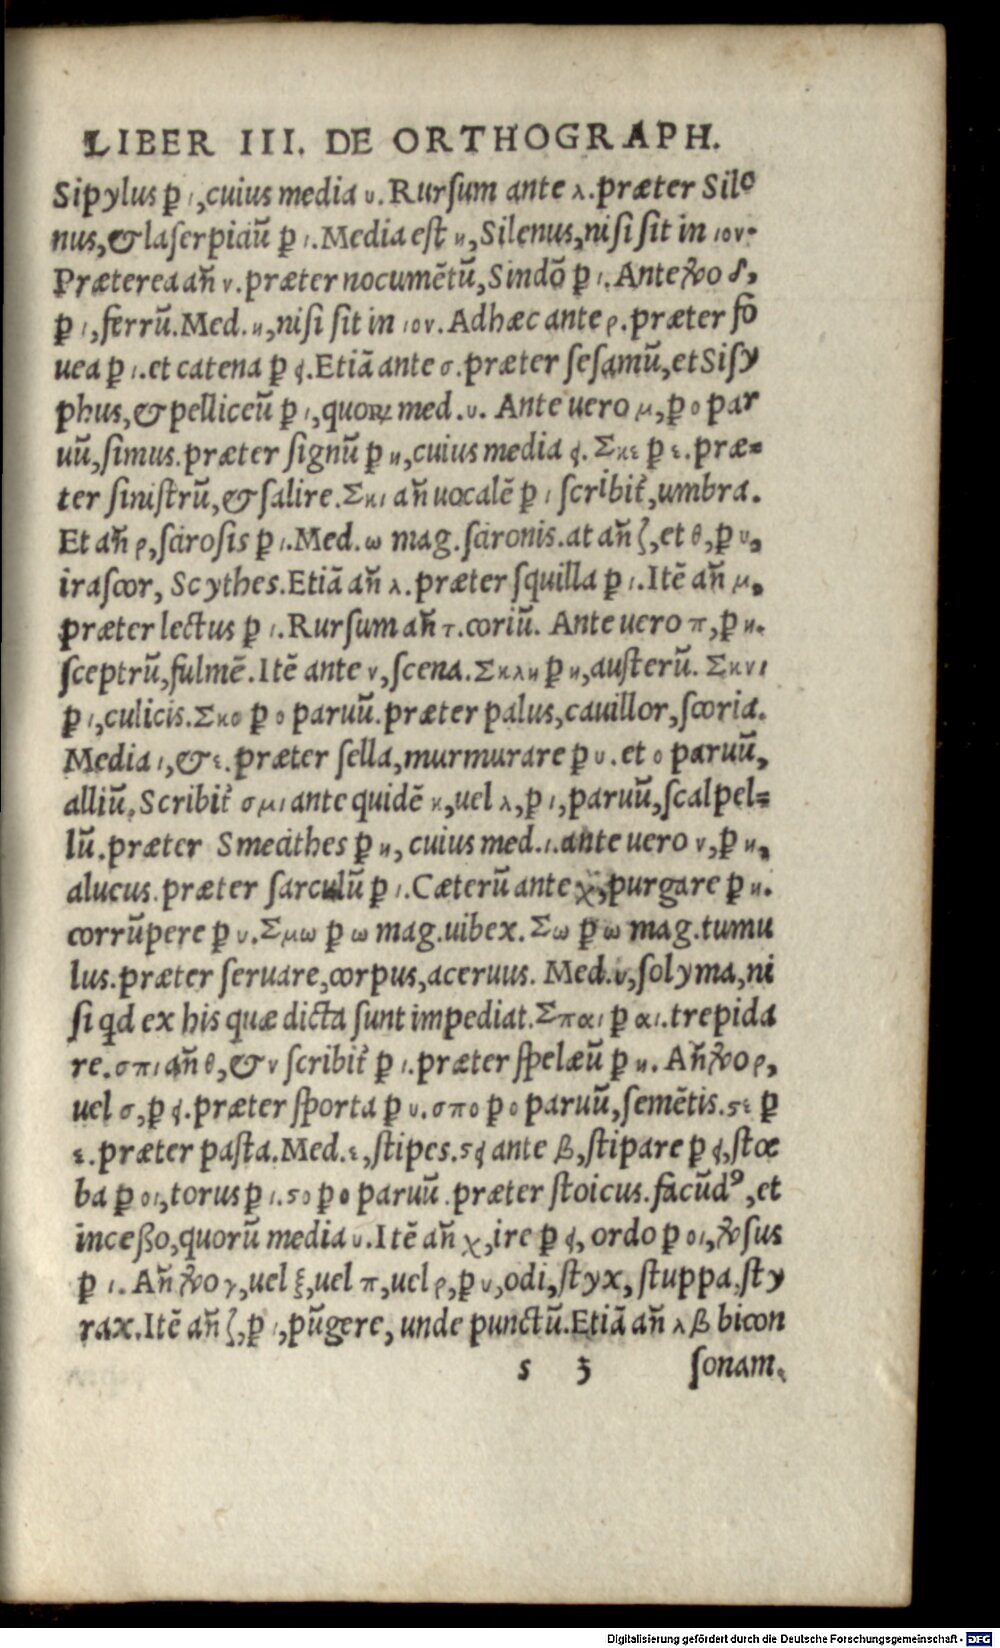 LIBER III. DE ORTHOGRAPH.
Sipylus ꝑ ι, cuius media υ. Rurſum ante λ. præter Sile
nus, & laſerpiciū ꝑ ι. Media eſt η, Silenus, niſi ſit in ιον.
Præterea añ ν. præter nocumētū, Sindō ꝑ ι. Ante ꝟo δ,
ꝑ ι, ferrū. Med. η, niſi ſit in ιον. Adhæc ante ρ. præter fo
uea ꝑ ι. et catena ꝑ ει. Etiā ante σ. præter ſeſamū, et Siſy
phus, & pelliceū ꝑ ι, quoꝝ med. υ. Ante uero μ, ꝑ ο par
uū, ſimus. præter ſignū ꝑ η, cuius media ει. Σκε ꝑ ε. præ=
ter ſiniſtrū, & ſalire. Σκι añ uocalē ꝑ ι ſcribiť, umbra.
Et añ ρ, ſciroſis ꝑ ι. Med. ω mag. ſcironis. at añ ζ, et θ, ꝑ υ,
iraſcor, Scythes. Etiā añ λ. præter ſquilla ꝑ ι. Itē añ μ,
præter lectus ꝑ ι. Rurſum añ τ. coriū. Ante uero π, ꝑ η.
ſceptrū, fulmē. Itē ante ν, ſcena. Σκλη ꝑ η, auſterū. Σκνι
ꝑ ι, culicis. Σκο ꝑ ο paruū. præter palus, cauillor, ſcoria.
Media ι, & ε. præter ſella, murmurare ꝑ υ. et ο paruū,
alliū. Scribiť σμι ante quidē κ, uel λ, ꝑ ι, paruū, ſcalpel=
lū. præter Smecithes ꝑ η, cuius med. ι. ante uero ν, ꝑ η,
alucus. præter ſarculū ꝑ ι. Cæterū ante χ, purgare ꝑ η.
corrūpere ꝑ υ. Σμω ꝑ ω mag. uibex. Σω ꝑ ω mag. tumu
lus. præter ſeruare, corpus, aceruus. Med. υ, ſolyma, ni
ſi qd ex his quæ dicta ſunt impediat. Σπαι ꝑ αι. trepida
re. σπι añ θ, & ν ſcribiť ꝑ ι. præter ſpelæū ꝑ η. Añ ꝟo ρ,
uel σ, ꝑ ει. præter ſporta ꝑ υ. σπο ꝑ ο paruū, ſemētis. ϛε ꝑ
ε. præter paſta. Med. ε, ſtipes. ϛει ante β, ſtipare ꝑ ει, ſtœ
ba ꝑ οι, torus ꝑ ι. ϛο ꝑ ο paruū. præter ſtoicus. facūdꝰ, et
inceſſo, quorū media υ. Itē añ χ, ire ꝑ ει, ordo ꝑ οι, ꝟſus
ꝑ ι. Añ ꝟo γ, uel ξ, uel π, uel ρ, ꝑ υ, odi, ſtyx, ſtuppa. ſty
rax. Itē añ ζ, ꝑ ι, pūgere, unde punctū. Etiā añ λβ bicon
s 3 ſonam.
Digitalisierung gefördert durch die Deutsche Forschungsgemeinschaft - DFG